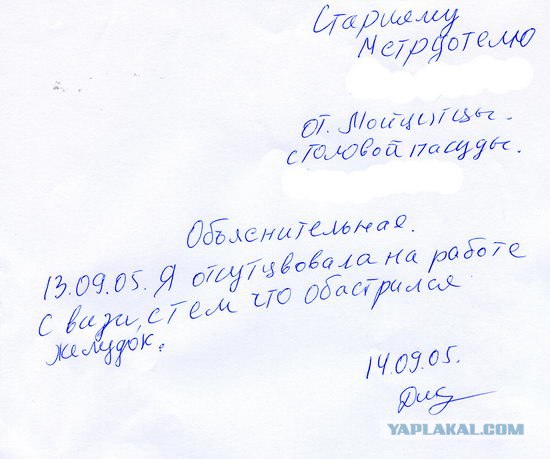 Старшему
Метрдотелю
от. Мойщитцы.
столовой пасуды.
Объяснительная.
13.09.05. Я отсутцвовала на работе
с вязи, с тем что обастрился
желудок.
14.09.05.
YAPLAKAL.COM